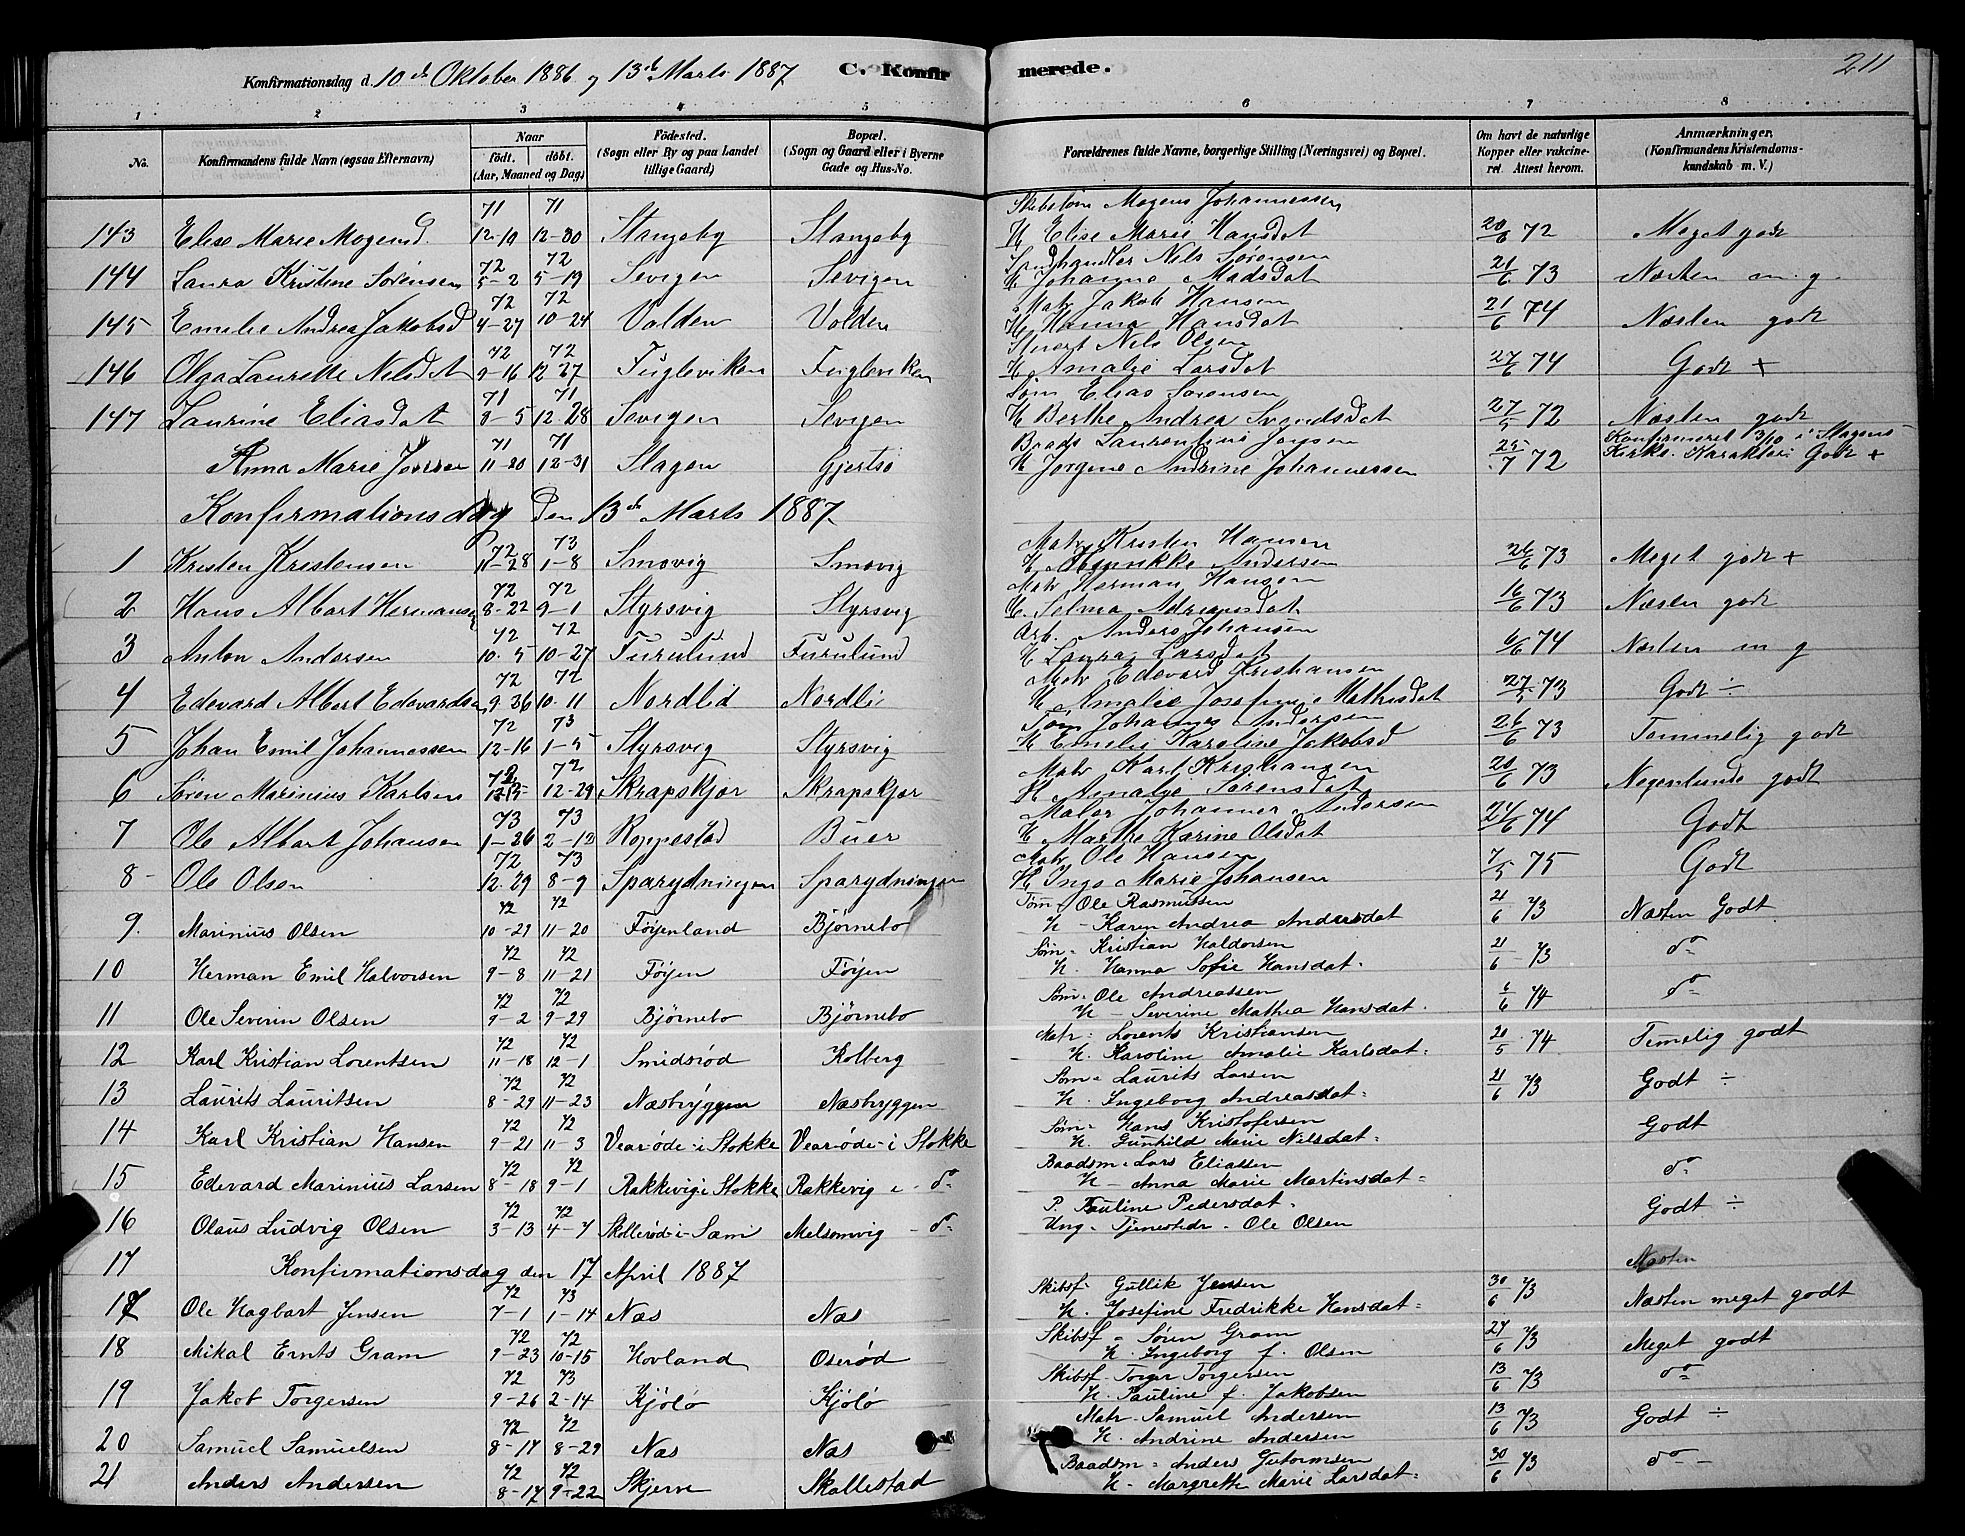 Konfirmationsdag d. 10de Oktober 1886 og 13de Marts 1887 C. Konfirmerede. 211
1 2 3 4 5 6 7 8
No. Konfirmandens fulde Navn (ogsaa Efternavn) Naar födt. döbt. (Aar, Maaned og Dag) Födested. (Sogn eller By og paa Landet tillige Gaard) Bopæl. (Sogn og Gaard eller i Byerne Gade og Hus-No. Forældrenes fulde Navne, borgerlige Stilling (Næringsvei) og Bopæl. Om havt de naturlige Kopper eller vakcineret. Attest herom. Anmærkninger. (Konfirmandens Kristendomskundskab m. V.)
71 71 Mogens Johannessen
143 Elise Marie Mogensd. 12-19 12-30 Stangeby Stangeby H Elise Marie Hansdat 20/6 72 Meget godt
72 72 Nils Sørensen
144 Laura Kristine Sørensen 5-2 5-19 Sevigen Sevigen H Johanne Madsdat 21/6 73 Næsten m. g.
72 72 Matr Jakob Hansen
145 Emelie Andrea Jakobsd 4-27 10-24 Volden Volden H. Hanna Hansdat 21/6 74 Næsten godt
72 72 Nils Olsen
146 Olga Laurette Nilsdat 9-16 12-27 Fugleviken Fugleviken H Amalie Larsdat 27/6 74 Godt +
71 71 Søm Elias Sørensen
147 Laurine Eliasdat 8-5 12-28 Sevigen Sevigen H Berthe Andrea Svendsdat 27/5 72 Næsten godt
71 71 Laurentius Konfirmeret 3/10 i Slagens
Anna Marie 11-20 12-31 Slagen Gjertsø H Jørgine Andrine Johannessen 25/7 72 Kirke. Karakter: Godt +
Konfirmationsdag den 13de Marts 1887.
72 73 Matr Kristen Hansen
1 Kristen Kristensen 11-28 1-8 Smovig Smovig H Andersen 26/6 73 Meget godt +
72 72 Matr Herman Hansen
2 Hans Albert Hermansen 8-22 9-1 Styrsvig Styrsvig H. Selma Adriansdat 16/6 73 Næsten godt
72 72 Arb. Anders Johansen
3 Anton Andersen 10-5 10-27 Furulund Furulund H Laura Larsdat 6/6 74 Næsten m g
72 72 Matr Edevard Kristiansen
4 Edevard Albert Edevardsen 9-26 10-11 Nordlid Nordli H. Amalie Josefine Mathisdat 27/5 73 Godt ÷
72 73 Tøm Johannes Andersen
5 Johan Emil Johannessen 12-16 1-5 Styrsvig Styrsvig H Emelie Karoline Jakobsd 26/6 73 Temmelig godt
72 72 Matr Karl Kristiansen
6 Søren Marinius Karlsen 12-29 Skrapskjær Skrapskjær H Amalie Sørensdat 20/6 73 Nogenlunde godt
73 73 Maler Johannes Andersen
7 Ole Albert Johansen 1-26 2-12 Roppestad Buer H Marthe Karine Olsdat 24/6 74 Godt
72 73 Matr Ole Hansen
8- Ole Olsen 12-29 8-9 Sparydningen Sparydningen H Inge Marie Johansen 7/5 75 Godt
72 72 Tøm. Ole Rasmussen
9. Marinius Olsen 10-29 11-20 Føyenland Bjørnebo H - Karen Andrea Andersdat 21/6 73 Næsten Godt
72 72 Søm. Kristian Haldorsen
10 Herman Emil Halvorsen 9-8 11-21 Føyen Føyen H. Hanna Sofie Hansdat. 21/6 73 do
72 72 Søm. Ole Andreassen
11 Ole Severin Olsen 9-2 9-29 Bjørnebo Bjørnebo H - Severine Mathea Hansdat. 6/6 74 do
72 72 Matr. Lorents Kristiansen
12 Karl Kristian Lorentsen 11-18 12-1 Smidsrød Kolberg H. Karoline Amalie Karlsdat. 20/5 74 Temelig godt
72 72 Søm. Laurits Larsen
13 Laurits Lauritsen 8-29 11-23 Næsbryggen Næsbryggen H. Ingeborg Andreasdat. 21/6 73 Godt ÷
72 72 Søm. Hans Kristofersen
14 Karl Kristian Hansen 9-21 11-3 Vearøde-i Stokke Vearøde-i Stokke H. Gunhild Marie Nilsdat. Godt
72 72 Baadsm. Lars Eliassen
15 Edevard Marinius Larsen 8-18 9-1 Rakkevig i Stokke Rakkevig i - do H - Anna Marie Martinsdat. do
72 72 P. Pauline Pedersdat.
16 Olaus Ludvig Olsen 3-13 4-7 Skallerød-i-Sæm Melsomvig - do Ung. Tjenestdr. Ole Olsen Godt ÷
17 Konfirmationsdag den 17 April 1887 Næsten
72 73 Skibsf. Gullik Jensen
17 Ole Hagbart Jensen 7-1 1-14 Næs Næs H. Josefine Fredrikke Hansdat. 30/6 73 Næsten meget godt
72 72 Skibsf. Søren Gram
18 Mikal Ernts Gram 9-23 10-15 Hovland Oserød H. Ingeborg f. Olsen 27/6 73 Meget godt
72 73 Skibsf. Torger Torgersen
19 Jakob Torgersen 9-26 2-14 Kjølø Kjølø H. Pauline f. Jakobsen 13/6 73 do
72 72 Matr. Samuel Andersen
20 Samuel Samuelsen 8-17 8-29 Næs Næs H. Andrine Andersen 13/6 73 Godt ÷
72 72 Baadsm. Anders Gutormsen
21 Anders Andersen 8-17 9-22 Skjerve Skallestad H. Margrethe Marie Larsdat. 30/6 73 do -